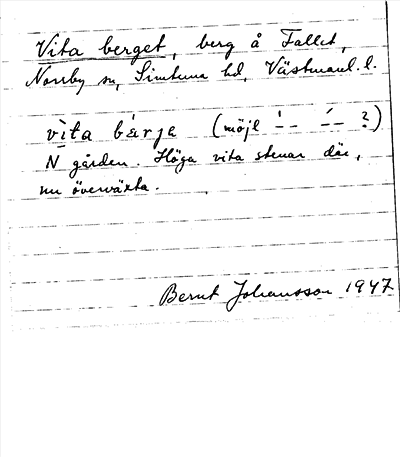 Vita berget, berg å Fallet,
Norrby sn, Simtuna hd, Västmanl. l.
vìta bárje (möjl ˈ-- ˊ-- ?)
N gården. Höga vita stenar där,
nu överväxta.
Bernt Johansson 1947